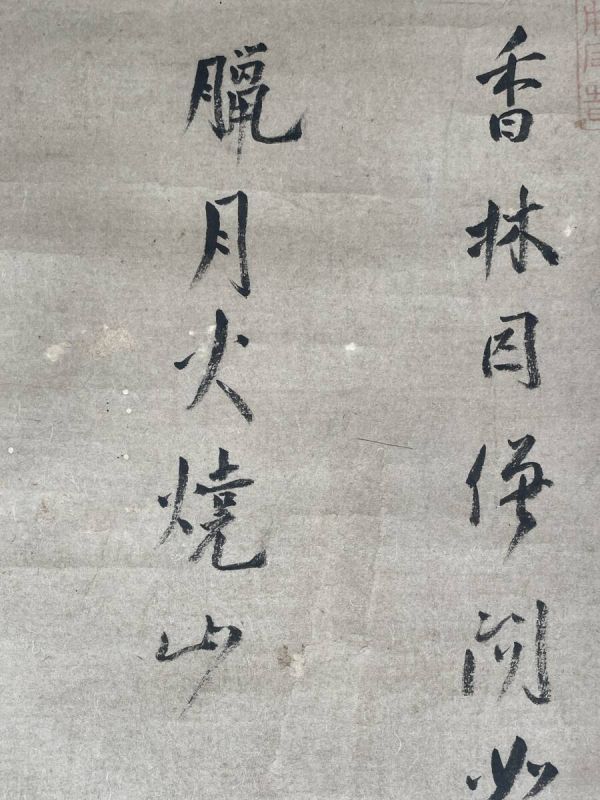 香林因僧問如
臘月火燒山